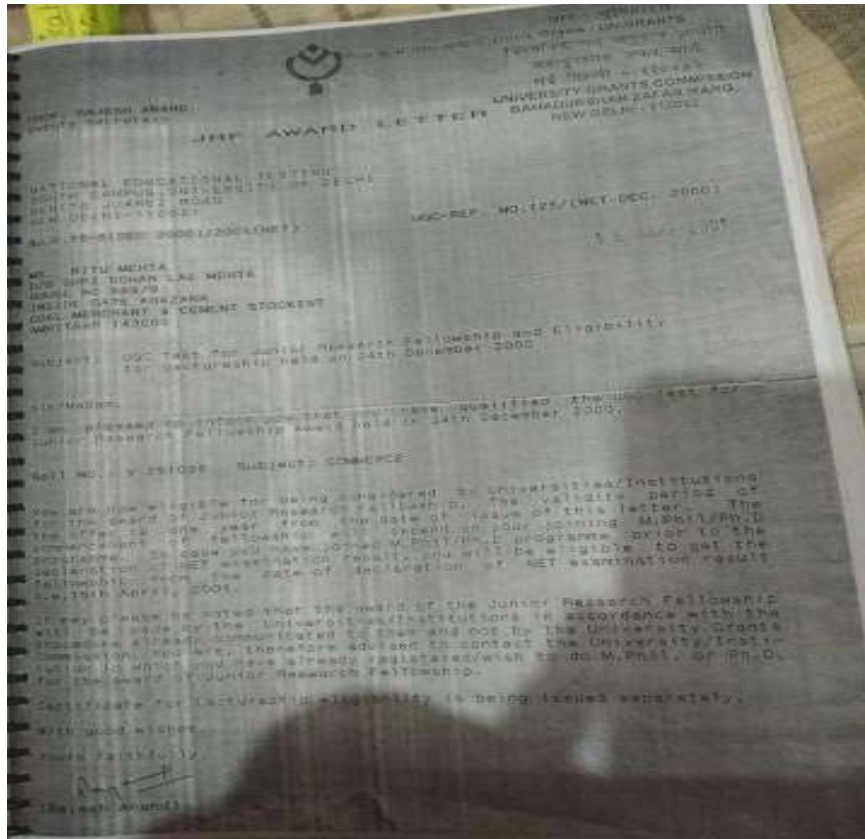 UNIVERSITY GRANTS COMMISSION
BAHADUR SHAH ZAFAR MARG,
NEW DELHI-110002
PROF. RAJESH ANAND,
JRF AWARD LETTER
NATIONAL EDUCATIONAL TESTING
SOUTH CAMPUS, UNIVERSITY OF DELHI
BENITO JUAREZ ROAD
NEW DELHI-110021
UGC-REF. NO.129/(NET-DEC. 2000)
MS. RITU MEHTA
D/O SHRI SOHAN LAL MEHTA
HOUSE NO
INSIDE GATE KHAZANA
COAL MERCHANT & CEMENT STOCKIST
AMRITSAR 143001
Subject: UGC Test for Junior Research Fellowship and Eligibility
for Lectureship held on 24th December 2000
Sir/Madam,
I am pleased to inform you that you have qualified the UGC Test for
Junior Research Fellowship Award held on 24th December 2000.
Roll No. Subject: COMMERCE
You are now eligible for being considered by Universities/Institutions
for the award of Junior Research Fellowship. The validity period of
the offer is one year from the date of issue of this letter. The
commencement of fellowship will depend on your joining M.Phil/Ph.D
programme. In case you have joined M.Phil/Ph.D programme prior to the
declaration of NET examination result, you will be eligible to get the
fellowship from the date of declaration of NET examination result
i.e. 15th April, 2001.
It may please be noted that the award of the Junior Research Fellowship
will be made by the Universities/Institutions in accordance with the
procedure already communicated to them and not by the University Grants
Commission. You are, therefore advised to contact the University/Insti-
tution in which you have already registered/wish to do M.Phil. or Ph.D.
for the award of Junior Research Fellowship.
Certificate for Lectureship eligibility is being issued separately.
With good wishes,
Yours faithfully
(Rajesh Anand)